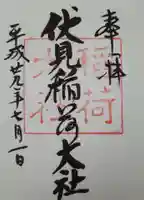 奉拝
伏見稲荷大社
平成廿九年七月一日